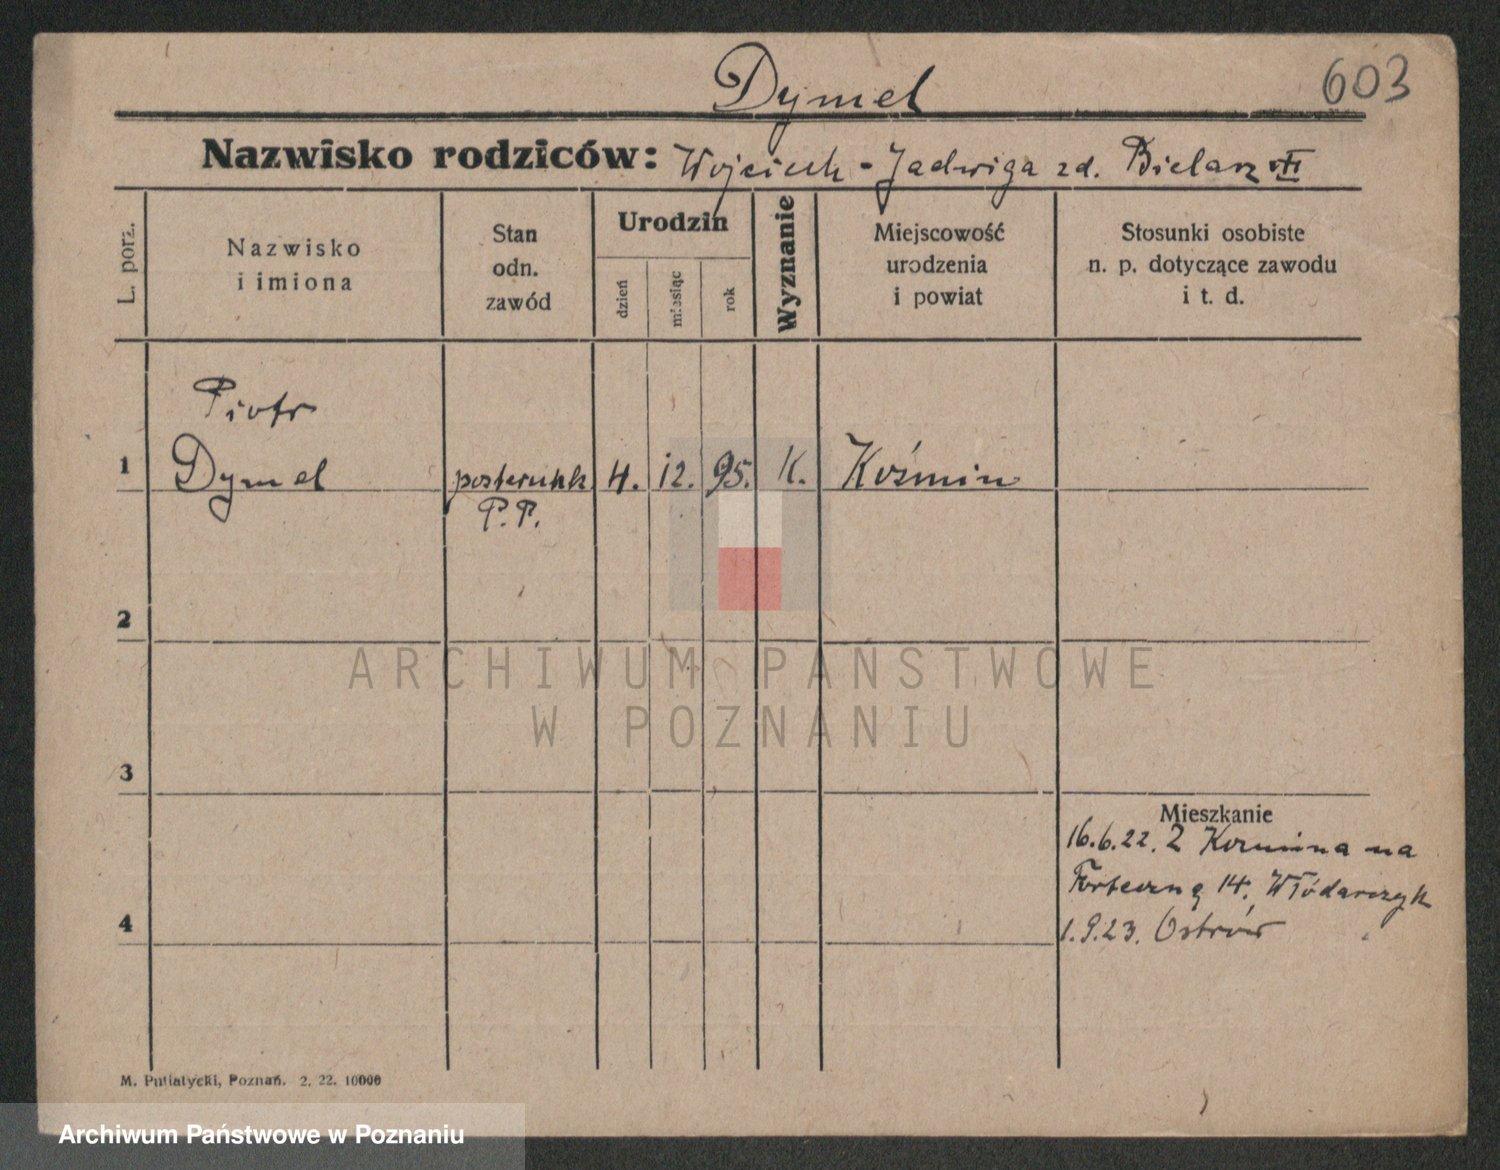 Dymel
603
Nazwisko rodziców: Wojciech - Jadwiga zd. Bielarz VII
L. porz.
Nazwisko
i imiona
Stan
odn.
zawód
Urodzin
dzień
miesiąc
rok
Wyznanie
Miejscowość
urodzenia
i powiat
Stosunki osobiste
n. p. dotyczące zawodu
i t. d.
Piotr
1 Dymel posterunk 4. 12. 95. K. Koźmin
P.P.
2
ARCHIWUM PAŃSTWOWE
W POZNANIU
3
Mieszkanie
16.6.22. Z Kozmina na
Forteczną 14. Włódarczyk
4
1.9.23. Ostrów
M. Putiatycki, Poznań. 2. 22. 10000
Archiwum Państwowe w Poznaniu